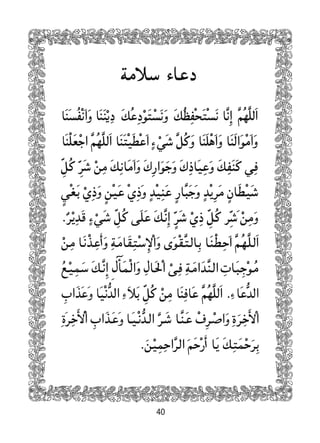 دعاء سلامة
اَللّٰهُمَّ إِنَّا نَسْتَحْفِظُكَ وَنَسْتَوْدِعُكَ دِيْنَنَا وَأَنْفُسَنَا
وَأَمْوَالَنَا وَأَهْلَنَا وَكُلَّ شَيْءٍ أَعْطَيْتَنَا اَللّٰهُمَّ اجْعَلْنَا
فِي كَنَفِكَ وَعِيَاذِكَ وَجِوَارِكَ وَأَمَانِكَ مِنْ شَرِّ كُلِّ
شَيْطَانٍ مَرِيْدٍ وَجَبَّارٍ عَنِيْدٍ وَذِيْ عَيْنٍ وَذِيْ بَغْيٍ
وَمِنْ شَرِّ كُلِّ ذِيْ شَرٍّ إِنَّكَ عَلَى كُلِّ شَيْءٍ قَدِيْرٌ.
اَللّٰهُمَّ احْطِنَا بِالتَّقْوَى وَالْإِسْتِقَامَةِ وَأَعِذْنَا مِنْ
مُوْجِبَاتِ النَّدَامَةِ فِيْ الْحَالِ وَالْمَآلِ إِنَّكَ سَمِيْعُ
الدُّعَاءِ. اَللّٰهُمَّ عَافِنَا مِنْ كُلِّ بَلَاءِ الدُّنْيَا وَعَذَابِ
الْأَخِرَةِ وَاصْرِفْ عَنَّا شَرَّ الدُّنْيَا وَعَذَابِ الْأَخِرَةِ
بِرَحْمَتِكَ يَا أَرْحَمَ الرَّاحِمِيْنَ.
40